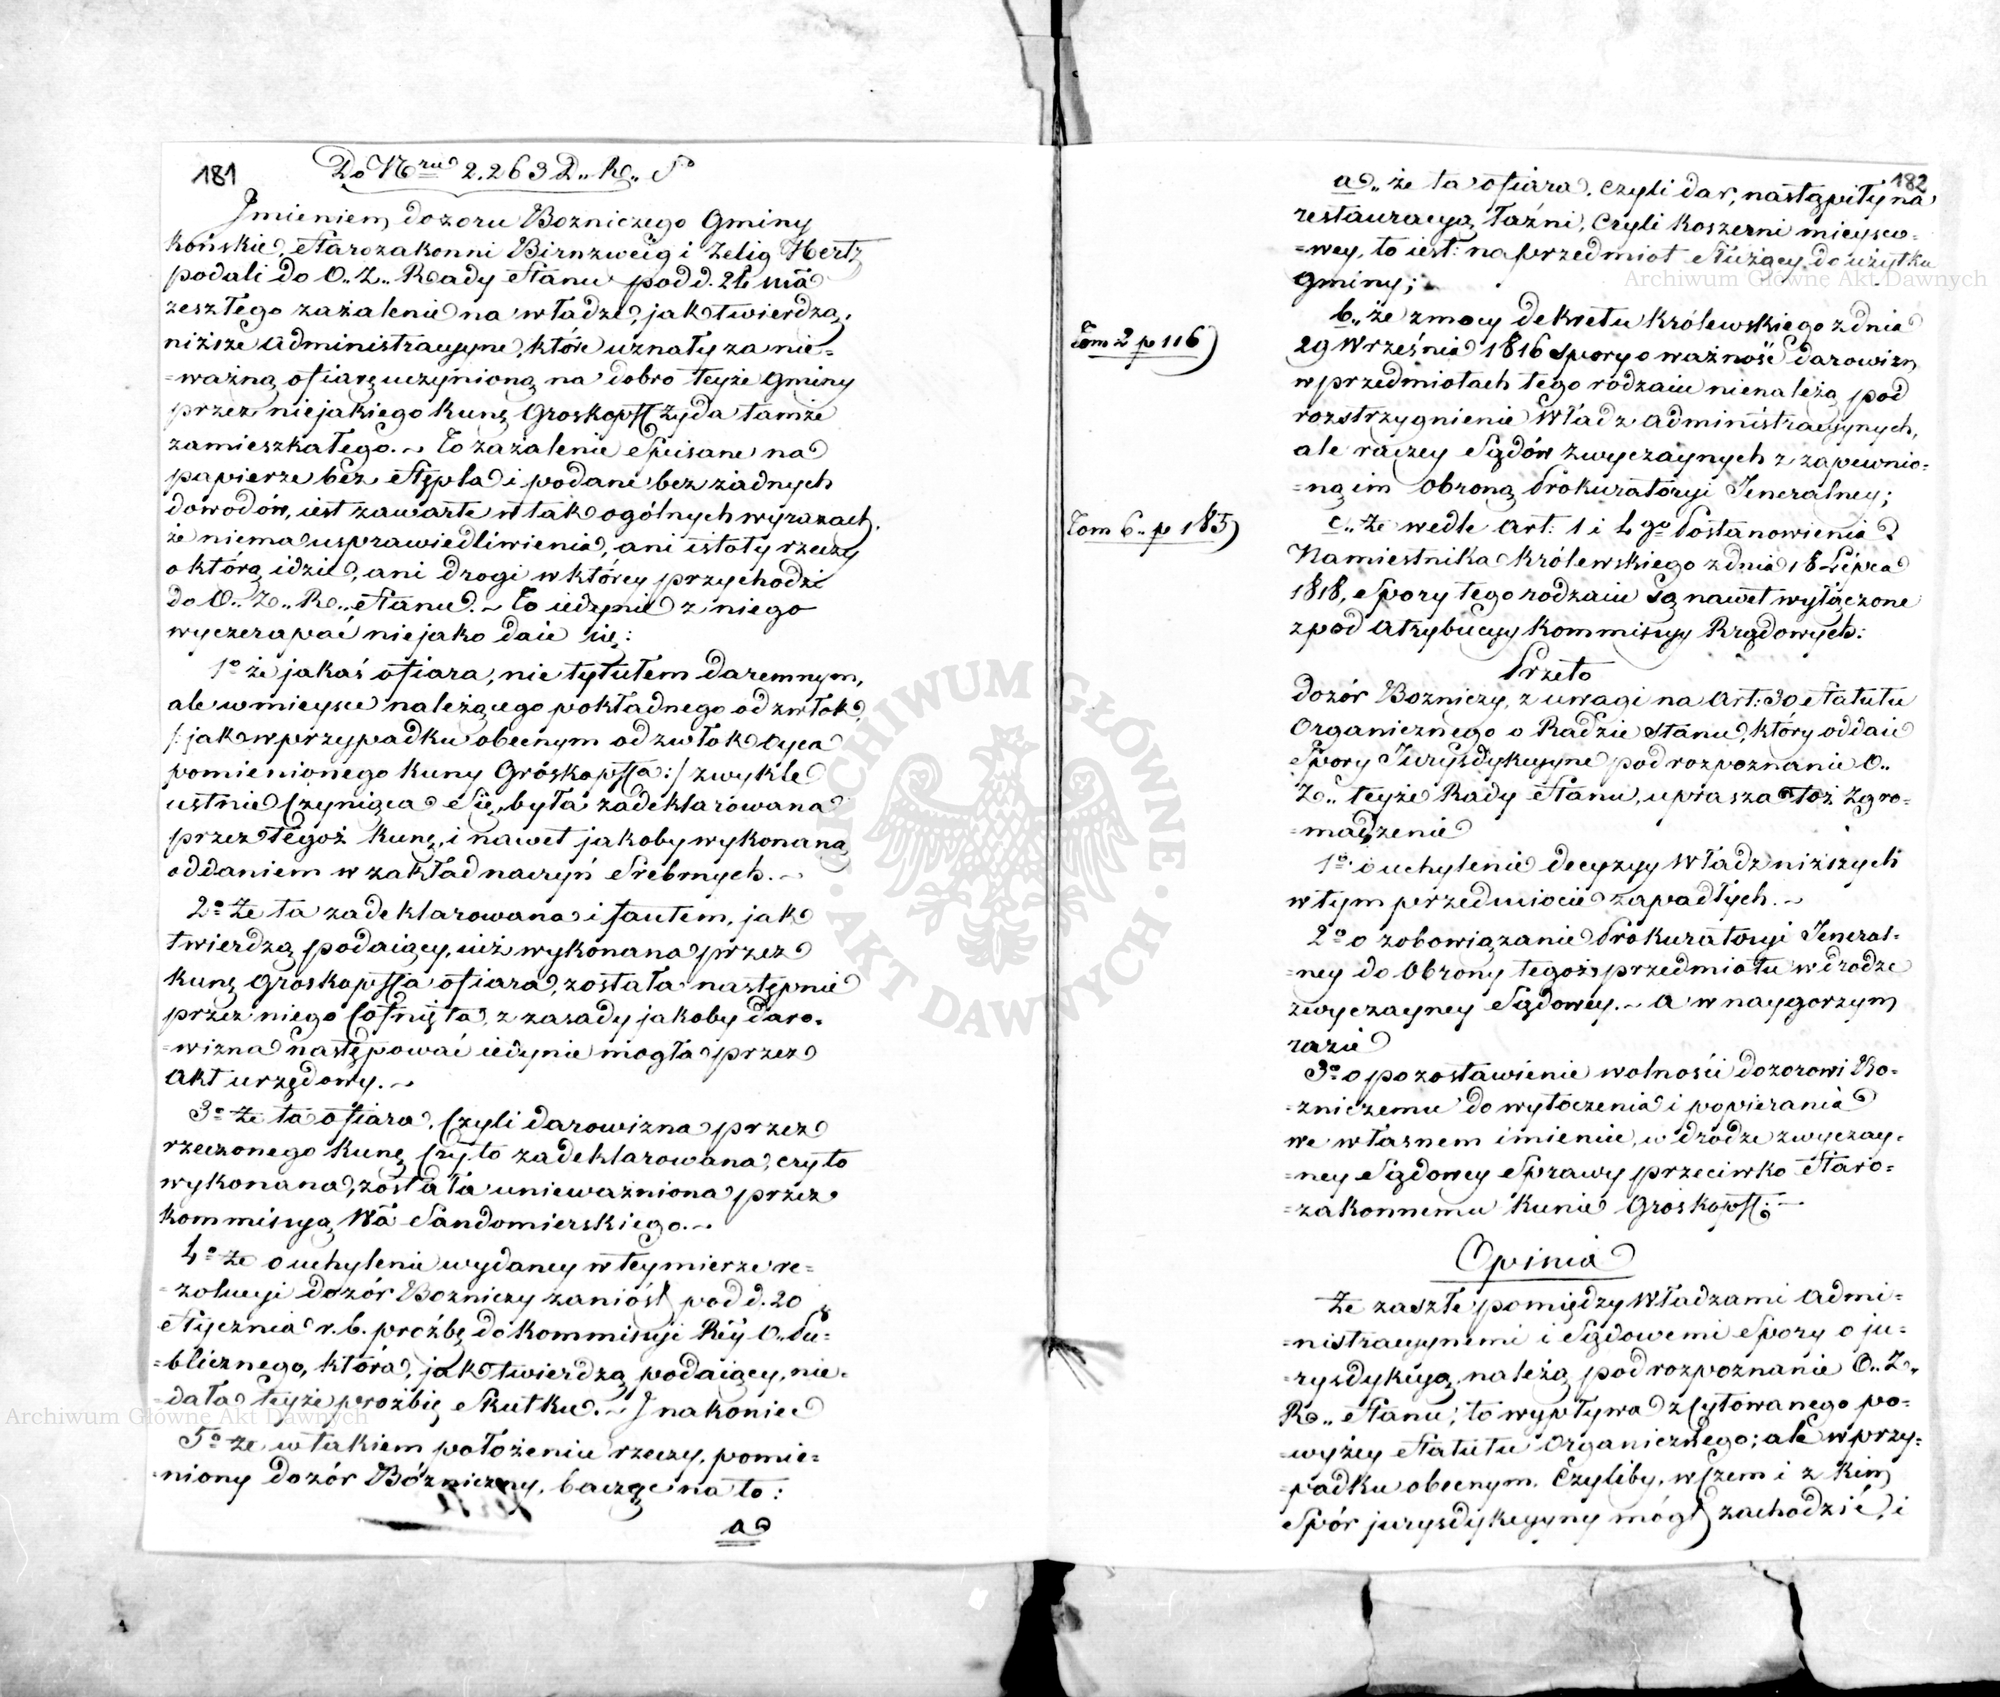 181
Do Nru 2.263 D.. R.. S
Jmieniem dozoru Bozniczego Gminy
końskie, Starozakonni Birnzweig i Zelig Hertz
podali do O.. Z.. Rady Stanu pod d. 21 ma
zeszłego zażalenie na władze, jak twierdzą,
niższe administracyjne, które uznały za nie=
=ważną ofiarę uczynioną na dobro teyże Gminy
przez niejakiego Kunę Groskopff Żyda tamże
zamieszkałego. ~ To zażalenie spisane na
papierze bez stępla i podane bez żadnych
dowodów, iest zawarte w tak ogólnych wyrazach,
że niema usprawiedliwienia, ani istoty rzeczy
o którą idzie, ani drogi w którey przychodzi
do O.. Z.. R.. Stanu. ~ To iedynie z niego
wyczerpać niejako daie się:
1o że jakaś ofiara, nie tytułem daremnym,
ale w mieysce należącego pokładnego od zwłok,
/: jak w przypadku obecnym od zwłok Oyca
pomienionego Kuny Gróskopffa :/ zwykle
ustnie czyniąca się, była zadeklarowana
przez tegoż Kunę, i nawet jakoby wykonana
oddaniem w zakład naczyń srebrnych. ~
2o Że ta zadeklarowana i fantem, jak
twierdzą podaiący, iuż wykonana przez
Kunę Groskopffa ofiara, została następnie
przez niego cofnięta, z zasady jakoby daro=
=wizna następować iedynie mogła przez
Akt urzędowy. ~
3o Że ta ofiara, czyli darowizna przez
rzeczonego Kunę czy to zadeklarowana, czy to
wykonana, została unieważniona przez
kommissyą Wa Sandomierskiego. ~
4o Że o uchylenie wydaney w teymierze re=
=zolucyi dozór Bozniczy zaniósł pod d. 20
Stycznia r. b. proźbę do Kommissyi Rey O. Pu=
=blicznego, która, jak twierdzą podaiący, nie=
=dała teyże proźbie skutku. ~ J nakoniec
5o Że w takiem położeniu rzeczy, pomie=
=niony dozór Bózniczny, bacząc na to:
a
182
a.. że ta ofiara, czyli dar, nastąpiły na
restauracyą łaźni, czyli koszerni mieysco=
=wey, to iest: na przedmiot służący do użytku
gminy;
Tom 2 p 116
b.. że z mocy dekretu królewskiego z dnia
29 Września 1816 spory o ważność darowizn
w przedmiotach tego rodzaiu nienależą pod
rozstrzygnienie Władz administracyjnych,
ale raczey Sądów zwyczaynych z zapewnio=
=ną im obroną Prokuratoryi Jeneralney;
Tom 6.. p 185
c.. Że wedle art: 1 i 4go Postanowienia
Namiestnika Królewskiego z dnia 18 Lipca
1818, spory tego rodzaiu są nawet wyłączone
z pod atrybucyy Kommissyy Rządowych:
Przeto
dozór Bozniczy, z uwagi na art: 30 Statutu
Organicznego o Radzie Stanu, który oddaie
spory Jurysdykcyyne pod rozpoznanie O..
Z.. teyże Rady Stanu, uprasza toż Zgro=
=madzenie
1o o uchylenie decyzyy Władz niższych
w tym przedmiocie zapadłych. ~
2o o zobowiązanie Prokuratoryi Jeneral=
=ney do obrony tegoż przedmiotu w drodze
zwyczayney Sądowey. ~ a w naygorszym
razie
3o o pozostawienie wolności dozorowi Bo=
=zniczemu do wytoczenia i popierania
we własnem imieniu, w drodze zwyczay=
=ney Sądowey Sprawy przeciwko Staro=
=zakonnemu Kunie Groskopff. ~
Opinia
Że zaszłe pomiędzy Władzami admi=
=nistracyynemi i Sądowemi spory o ju=
=rysdykcyą, należą pod rozpoznanie O.. Z..
R.. Stanu; to wypływa z cytowanego po=
=wyżey Statutu Organicznego; ale w przy=
=padku obecnym, Czyliby, w czem i z kim
spór jurysdykcyyny mógł zachodzić, i
Archiwum Główne Akt Dawnych
Archiwum Główne Akt Dawnych
ARCHIWUM GŁÓWNE · AKT DAWNYCH ·